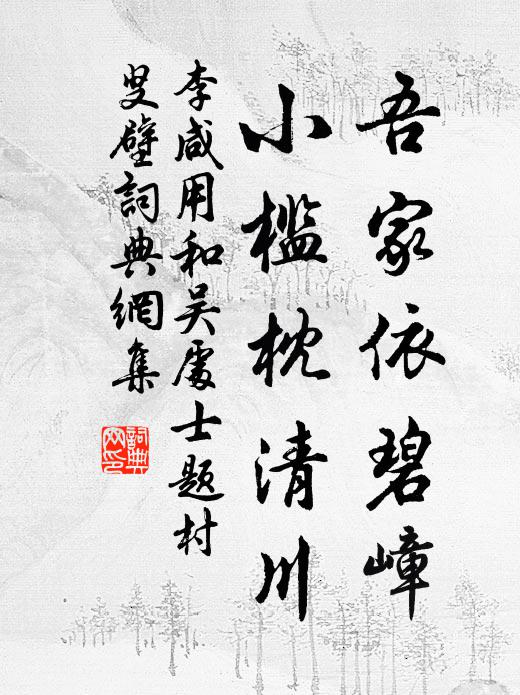 吾家依碧嶂
小檻枕清川
李咸用和吴處士題村
叟壁詞典網集
詞典
网印